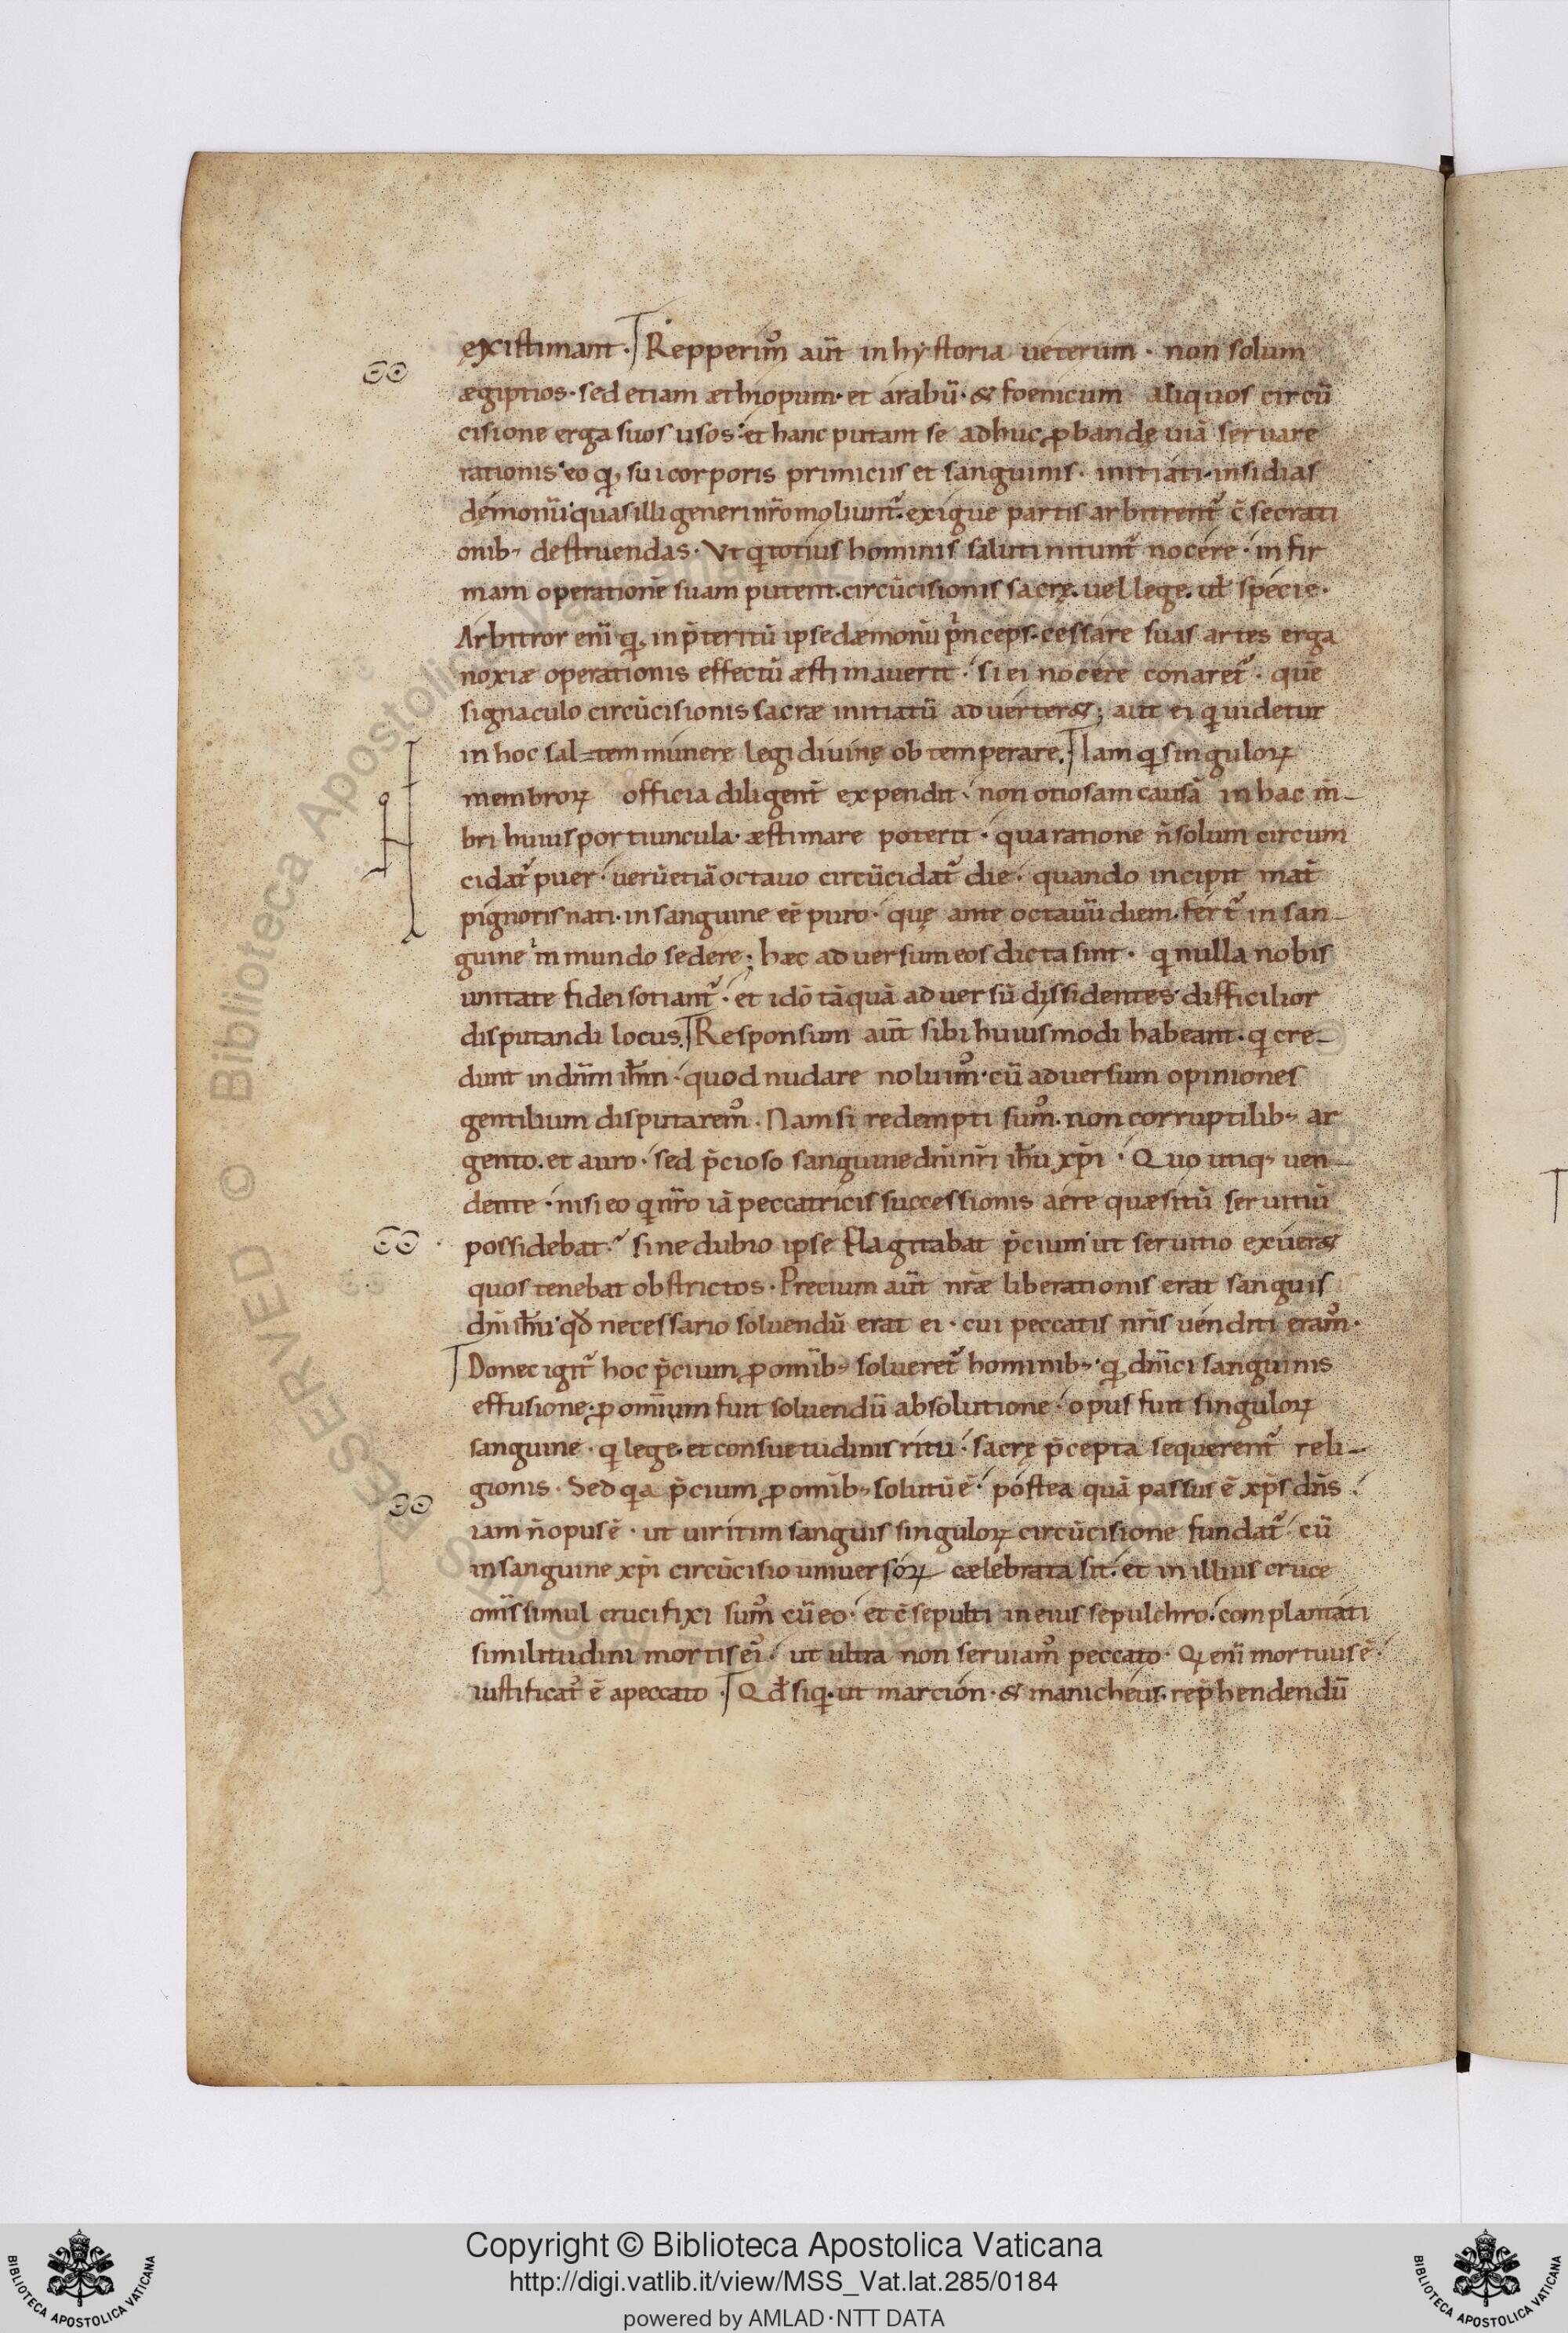 existimant · Repperim᷒ aut̄ in hystoria ueterum · non solum
ægiptios · sed etiam æthiopum · et arabū · & foenicum aliquos circū
cisione erga suos usos · et hanc putant se adhuc ꝓbandę uiā seruare
rationis · eo qđ sui corporis primiciis et sanguinis · initiati · insidias
demonū · quas illi generi nr̄o moliunt᷒ · exigue partis arbitrent᷒ c̄secrati
onib; destruendas · Vt qͥ totius hominis saluti nitunt᷒ nocere · infir
mam operationē suam putent · circūcisionis sacrę · uel lege · ul̄ specie ·
Arbitror enī qđ in p̄teritū ipse dæmoniū pͥnceps · cessare suas artes erga
noxiæ operationis effectū æstimauerit · si ei nocere conaret᷒ · quē
signaculo circūcisionis sacræ initiatū aduerter&; aut ei qͥ uidetur
in hoc sal=tem munere legi diuinę obtemperare. Iam qͥ singuloꝝ
membroꝝ officia diligent᷒ expendit · non otiosam causā in hac m̄-
bri huius portiuncula · æstimare poterit · qua ratione n̄ solum circum
cidat᷒ puer · uerū etiā octauo circūcidat᷒ die · quando incipit mat᷒
pignoris nati · in sanguine eē puro · quę ante octauū diem · fert᷒ in san-
guine inmundo sedere; hæc aduersum eos dicta sint · qͥ nulla nobis
unitate fidei sotiant᷒ · et idō tāquā aduersū dissidentes difficilior
disputandi locus. Responsum aut̄ sibi huiusmodi habeant · qͥ cre-
dunt in dn̄m ih̄m · quod nudare noluim᷒ · cū aduersum opiniones
gentilium disputarem᷒ · Nam si redempti sum᷒ · non corruptilib; ar
gento · et auro · sed p̄cioso sanguine dn̄i nr̄i ih̄u xp̄i · Quo utiq; uen-
dente · nisi eo qͥ nr̄o iā peccatricis successionis aere quæsitū seruitiū
possidebat · sine dubio ipse flagitabat p̄cium · ut seruitio exuer&
quos tenebat obstrictos · Precium aut̄ nr̄æ liberationis erat sanguis
dn̄i ih̄u · qđ necessario soluendū erat ei · cui peccatis nr̄is uenditi eram᷒ ·
Donec igit᷒ hoc p̄cium ꝓ omīb; solueret᷒ hominib; · qđ dn̄ici sanguinis
effusione · ꝓ omnium fuit soluendū absolutione · opus fuit singuloꝝ
sanguine · qͥ lege · et consuetudinis ritu · sacrę p̄cepta sequerent᷒ reli-
gionis · Sed qͥa p̄cium ꝓ omīb; solutū ē · postea quā passus ē xp̄s dn̄s ·
iam n̄ opus ē · ut uiritim sanguis singuloꝝ circūcisione fundat᷒ · cū
in sanguine xp̄i circūcisio uniuersoꝝ cælebrata sit · et in illius cruce
om̄s simul crucifixi sum᷒ cū eo · et c̄sepulti in eius sepulchro · complantati
similitudini mortis ei᷒ · ut ultra non seruiam᷒ peccato · Qͥ enī mortuus ē ·
iustificat᷒ ē a peccato · Qđ siqͥ · ut marcion · & manicheus · rep̄hendendū
Copyright © Biblioteca Apostolica Vaticana
http://digi.vatlib.it/view/MSS_Vat.lat.285/0184
powered by AMLAD·NTT DATA